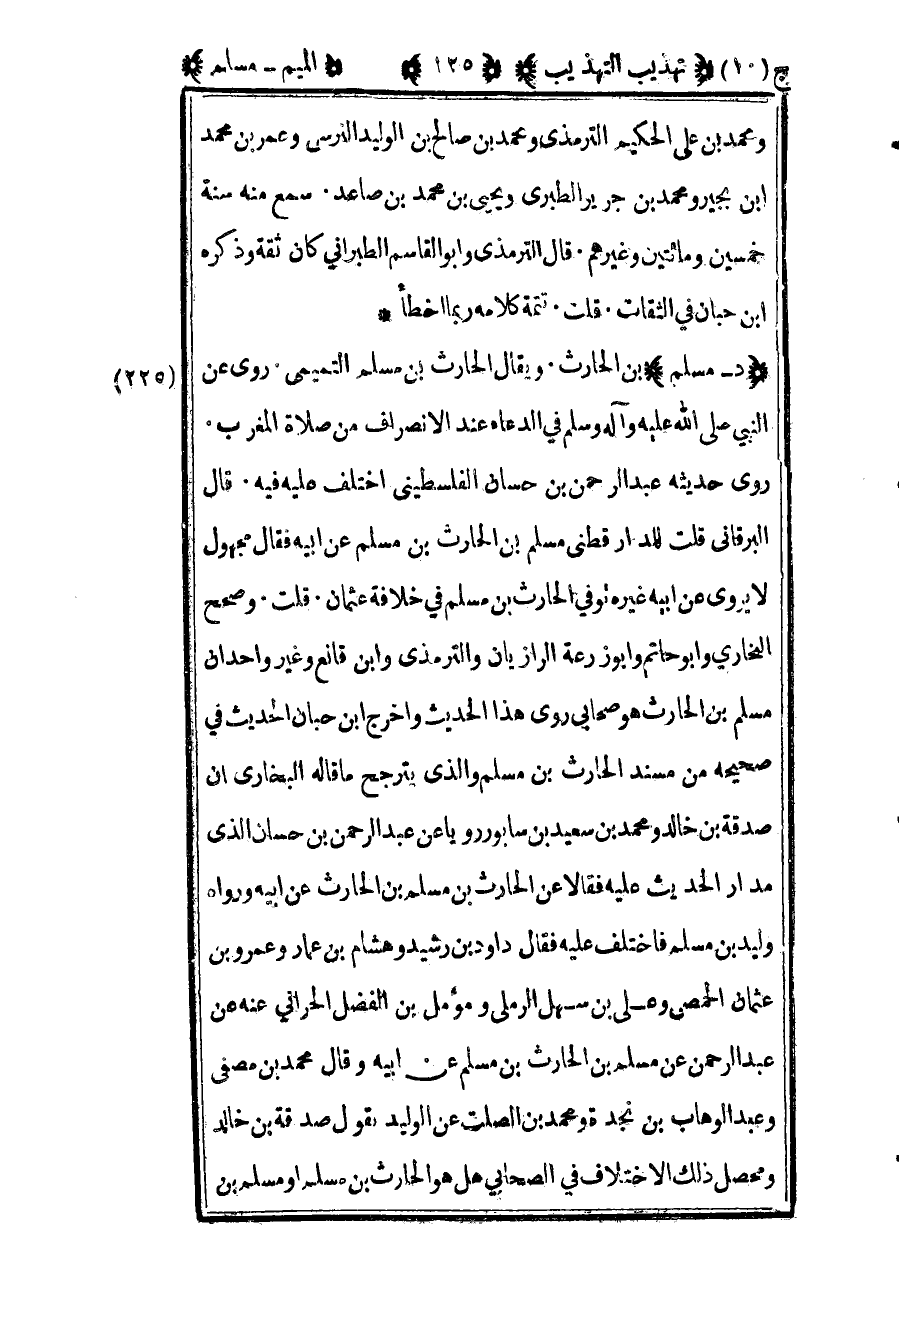 ج (١٠) ﴿ تهذيب التهذيب ﴾ ﴿ ١٢٥ ﴾ ﴿ الميم ـ مسلم ﴾
ومحمد بن على الحكيم الترمذى ومحمد بن صالح بن الوليد النرسى وعمر بن محمد
ابن بجير ومحمد بن جرير الطبرى ويحيى بن محمد بن صاعد ٠ سمع منه سنة
خمسين ومائتين وغيرهم ٠ قال الترمذى وابو القاسم الطبراني كان ثقة وذكره
ابن حبان في الثقات ٠ قلت ٠ تتمة كلامه ربما اخطأ *
﴿ د ـ مسلم ﴾ بن الحارث ٠ ويقال الحارث بن مسلم التميمى ٠ روى عن
(٢٢٥)
النبي صلى الله عليه وآله وسلم في الدعاء عند الانصراف من صلاة المغرب ٠
روى حديثه عبد الرحمن بن حسان الفلسطينى اختلف عليه فيه ٠ قال
البرقانى قلت للدار قطنى مسلم بن الحارث بن مسلم عن ابيه فقال مجهول
لا يروى عن ابيه غيره توفي الحارث بن مسلم في خلافة عثمان ٠ قلت ٠ وصحح
البخاري وابو حاتم وابو زرعة الرازيان والترمذى وابن قانع وغير واحد ان
مسلم بن الحارث هو صحابي روى هذا الحديث واخرج ابن حبان الحديث في
صحيحه من مسند الحارث بن مسلم والذى يترجح ما قاله البخارى ان
صدقة بن خالد ومحمد بن سعيد بن سابور رويا عن عبد الرحمن بن حسان الذى
مدار الحديث عليه فقالا عن الحارث بن مسلم بن الحارث عن ابيه ورواه
وليد بن مسلم فاختلف عليه فقال داود بن رشيد وهشام بن عمار وعمرو بن
عثمان الحمصى وعلى بن سهل الرملى ومؤمل بن الفضل الحراني عنه عن
عبد الرحمن عن مسلم بن الحارث بن مسلم عن ابيه وقال محمد بن مصفى
وعبد الوهاب بن نجدة ومحمد بن الصلت عن الوليد بقول صدقة بن خالد
ومحصل ذلك الاختلاف في الصحابي هل هو الحارث بن مسلم او مسلم بن